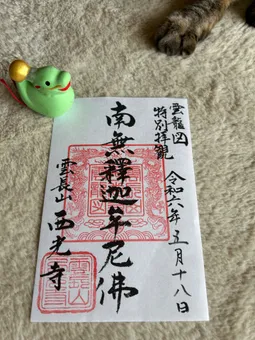 雲龍図
特別拝観
令和六年五月十八日
南無釋迦牟尼佛
雲長山 西光寺